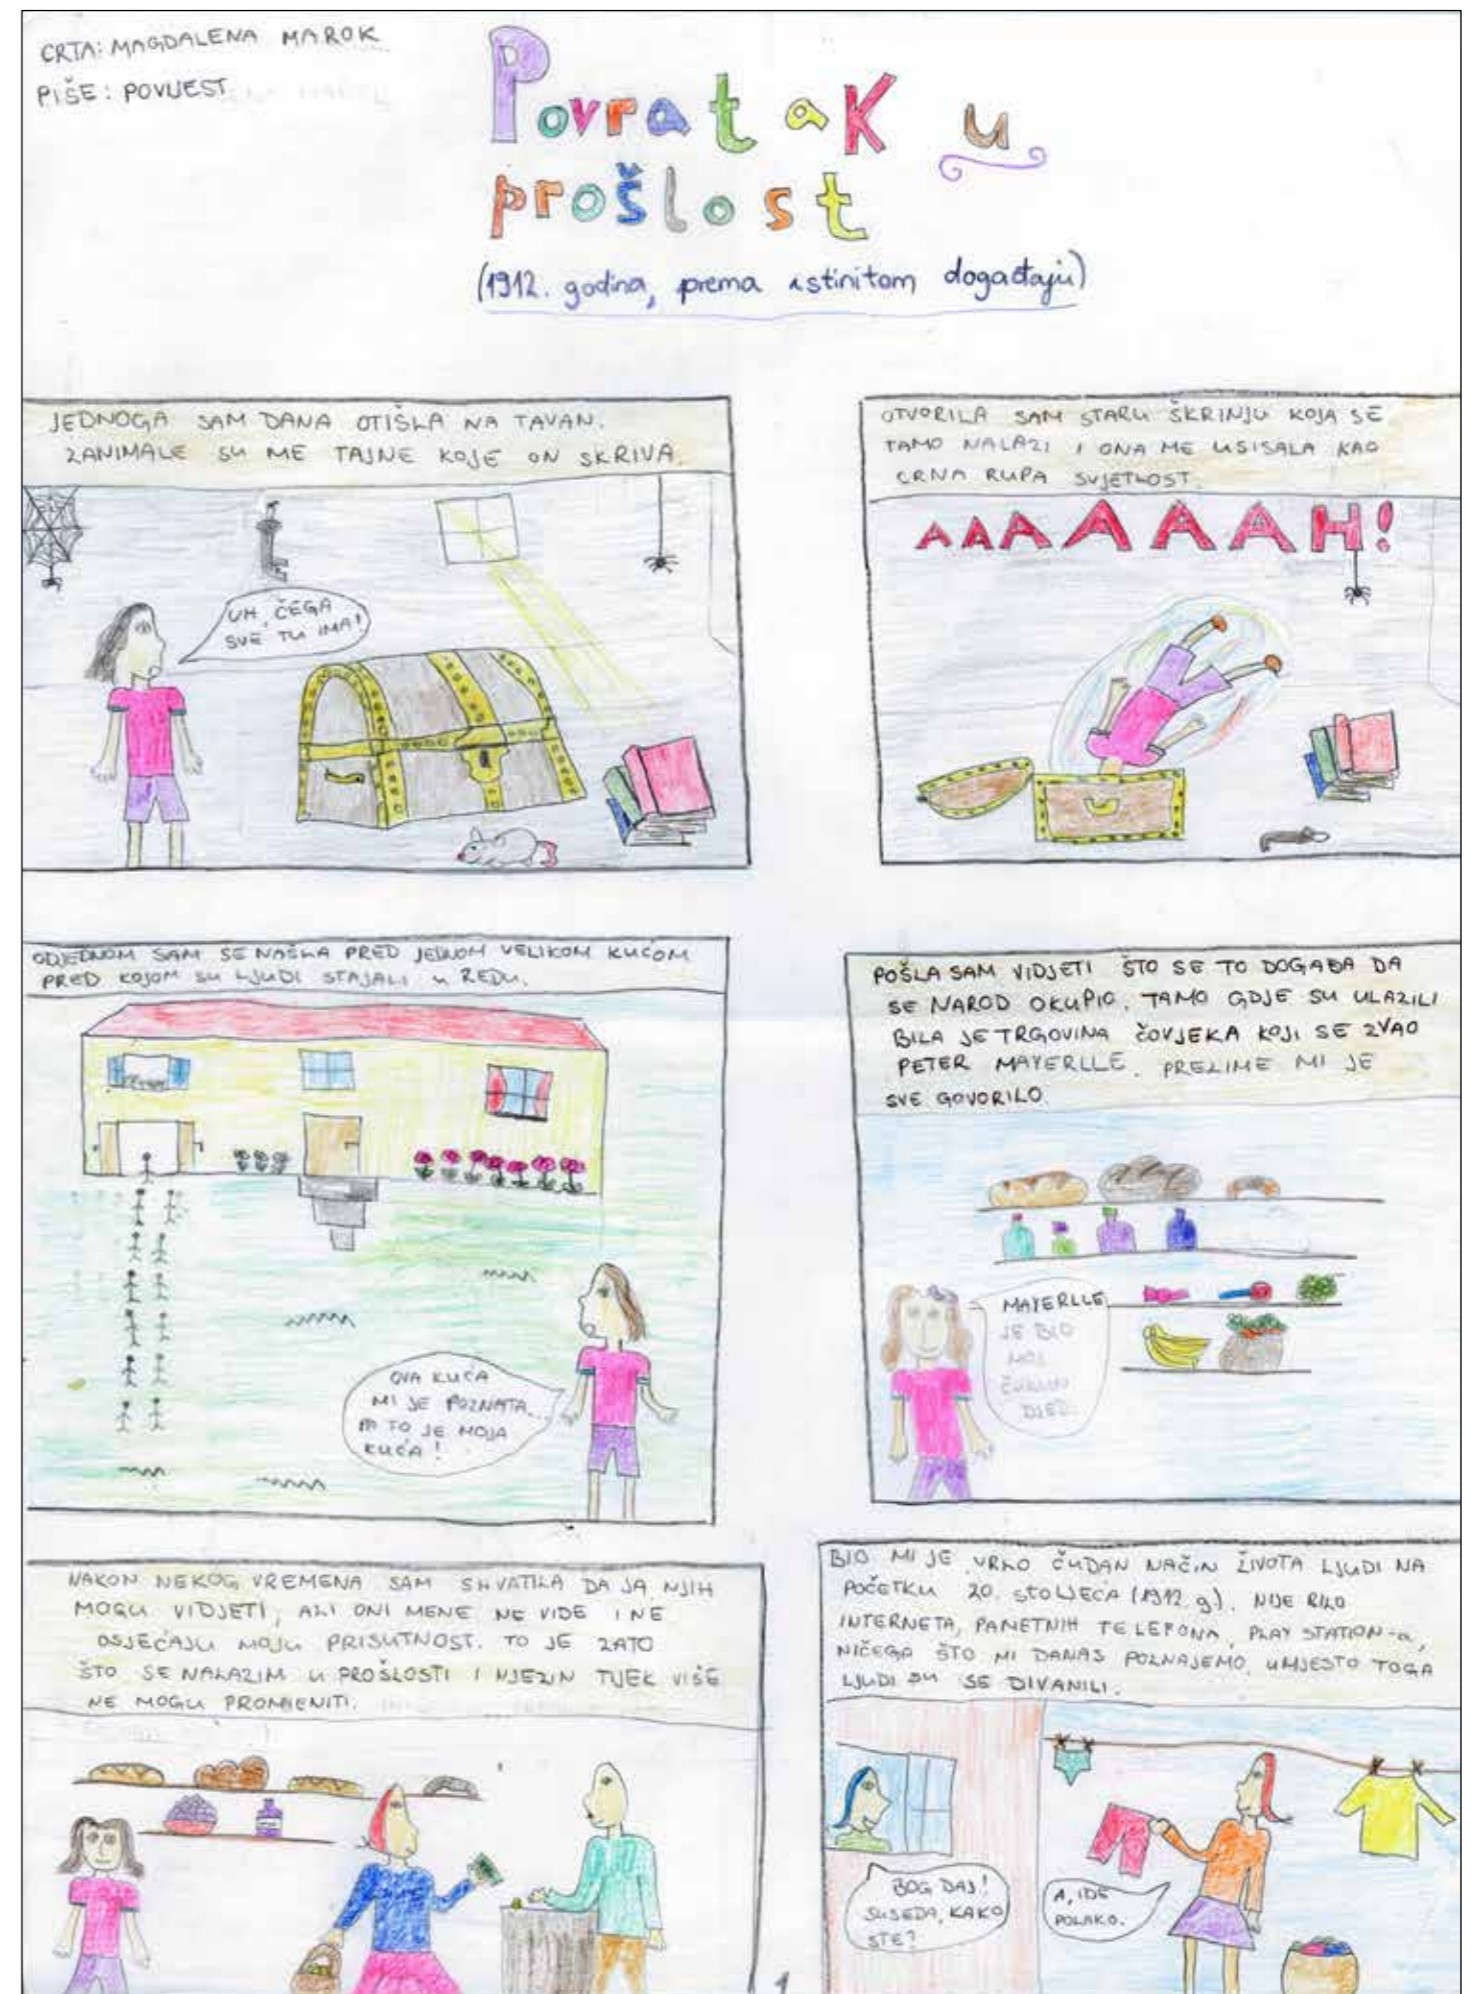 CRTA: MAGDALENA MAROK
PIŠE: POVIJEST
Povratak u
prošlost
(1912. godina, prema istinitom događaju)
JEDNOGA SAM DANA OTIŠLA NA TAVAN.
ZANIMALE SU ME TAJNE KOJE ON SKRIVA.
UH, ČEGA
SVE TU IMA!
OTVORILA SAM STARU ŠKRINJU KOJA SE
TAMO NALAZI I ONA ME USISALA KAO
CRNA RUPA SVJETLOST.
AAAAAAAH!
ODJEDNOM SAM SE NAŠLA PRED JEDNOM VELIKOM KUĆOM
PRED KOJOM SU LJUDI STAJALI U REDU.
OVA KUĆA
MI JE POZNATA...
PA TO JE MOJA
KUĆA!
POŠLA SAM VIDJETI ŠTO SE TO DOGAĐA DA
SE NAROD OKUPIO. TAMO GDJE SU ULAZILI
BILA JE TRGOVINA ČOVJEKA KOJI SE ZVAO
PETER MAYERLLE. PREZIME MI JE
SVE GOVORILO.
MAYERLLE
JE BIO
MOJ
ČUKUN
DJED.
NAKON NEKOG VREMENA SAM SHVATILA DA JA NJIH
MOGU VIDJETI, ALI ONI MENE NE VIDE I NE
OSJEĆAJU MOJU PRISUTNOST. TO JE ZATO
ŠTO SE NALAZIM U PROŠLOSTI I NJEZIN TIJEK VIŠE
NE MOGU PROMIJENITI.
BIO MI JE VRLO ČUDAN NAČIN ŽIVOTA LJUDI NA
POČETKU 20. STOLJEĆA (1912. g.). NIJE BILO
INTERNETA, PAMETNIH TELEFONA, PLAY STATION-a,
NIČEGA ŠTO MI DANAS POZNAJEMO. UMJESTO TOGA
LJUDI SU SE DIVANILI.
BOG DAJ!
SUSEDA, KAKO
STE?
A, IDE
POLAKO.
1